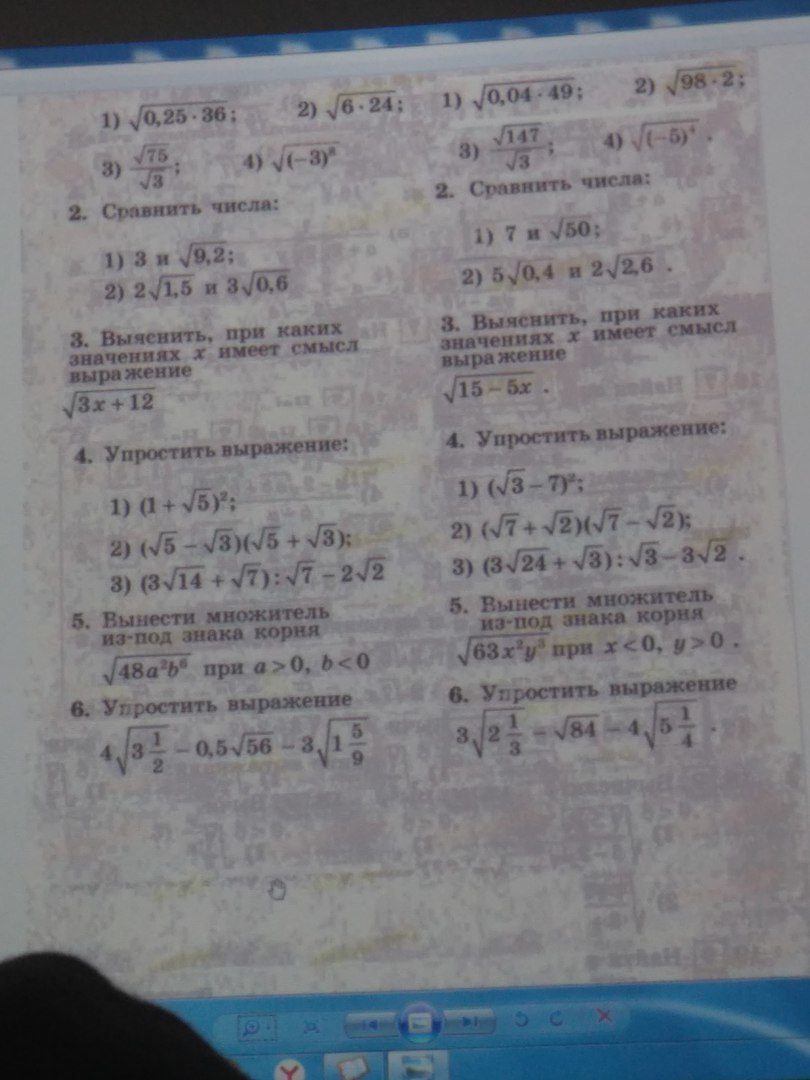 1) √(0,25 · 36); 2) √(6 · 24);
3) √75/√3; 4) √((−3)⁸)
2. Сравнить числа:
1) 3 и √(9,2);
2) 2√(1,5) и 3√(0,6)
3. Выяснить, при каких
значениях x имеет смысл
выражение
√(3x + 12)
4. Упростить выражение:
1) (1 + √5)²;
2) (√5 − √3)(√5 + √3);
3) (3√14 + √7) : √7 − 2√2
5. Вынести множитель
из-под знака корня
√(48a²b⁶) при a > 0, b < 0
6. Упростить выражение
4√(3 1/2) − 0,5√56 − 3√(1 5/9)
1) √(0,04 · 49); 2) √(98 · 2);
3) √147/√3; 4) √((−5)⁴) .
2. Сравнить числа:
1) 7 и √50;
2) 5√(0,4) и 2√(2,6) .
3. Выяснить, при каких
значениях x имеет смысл
выражение
√(15 − 5x) .
4. Упростить выражение:
1) (√3 − 7)²;
2) (√7 + √2)(√7 − √2);
3) (3√24 + √3) : √3 − 3√2 .
5. Вынести множитель
из-под знака корня
√(63x²y³) при x < 0, y > 0 .
6. Упростить выражение
3√(2 1/3) − √84 − 4√(5 1/4) .